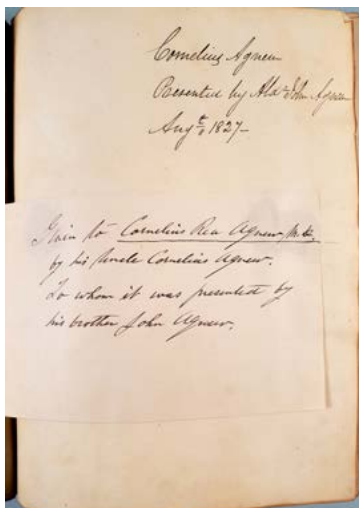 Cornelius Agnew
Presented by John Agnew
Aug 1827-
Given to Cornelius Rea Agnew, M.D.
by his Uncle Cornelius Agnew.
To whom it was presented by
his brother John Agnew.